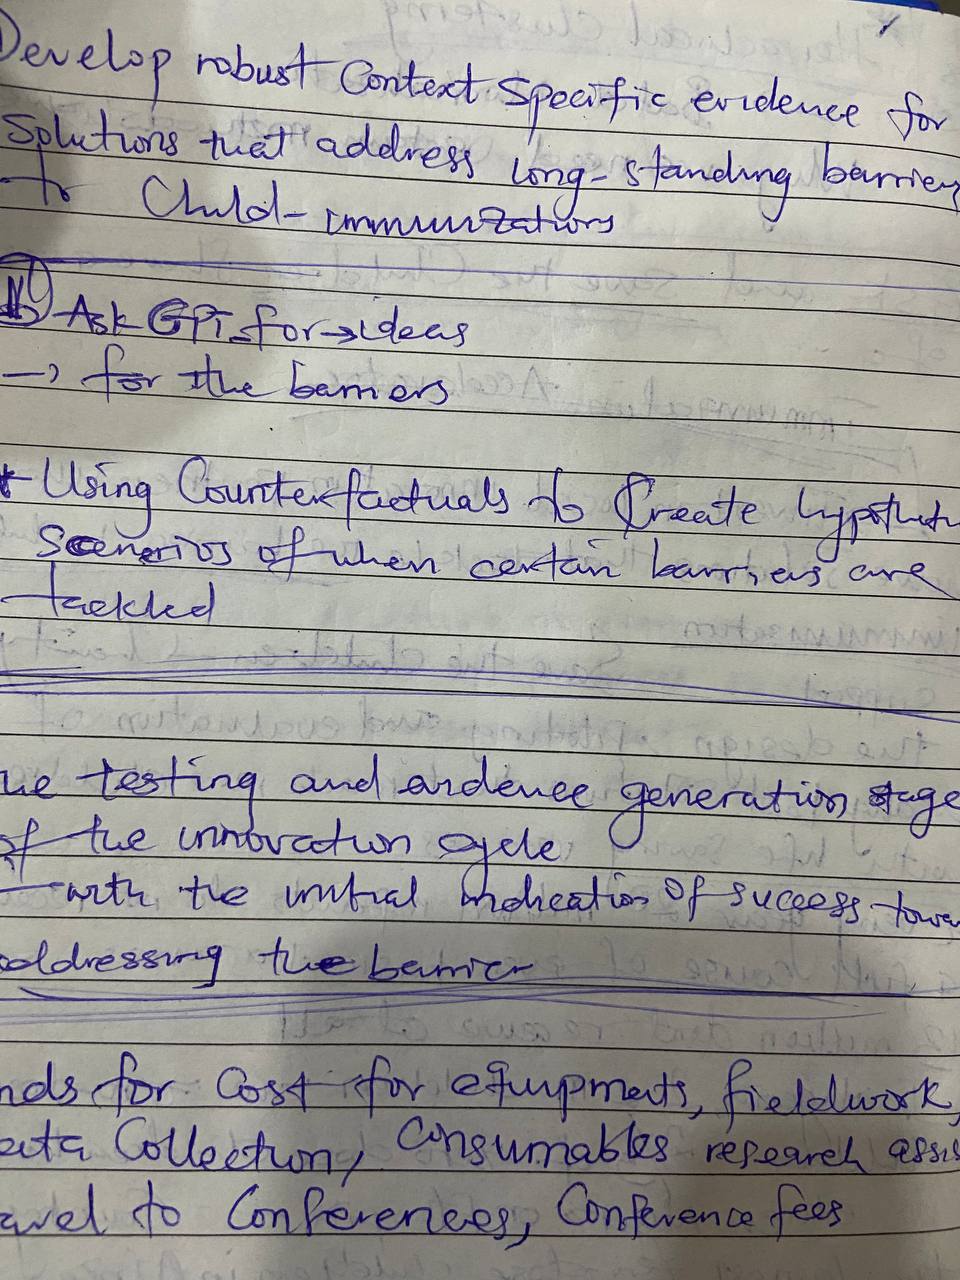 Develop robust Context Specific evidence for
Solutions that address long-standing barrier
to Child-immunizations
Ask GPT for → ideas
→ for the barriers
* Using Counterfactuals to Create hypothet
Scenerios of when certain barriers are
tackled
ue testing and evidence generation stage
of the innovation cycle
— with the initial indication of success towar
addressing the barrier
nds for Cost for equipments, fieldwork,
ata Collection, Consumables research assis
avel to Conferences, Conference fees